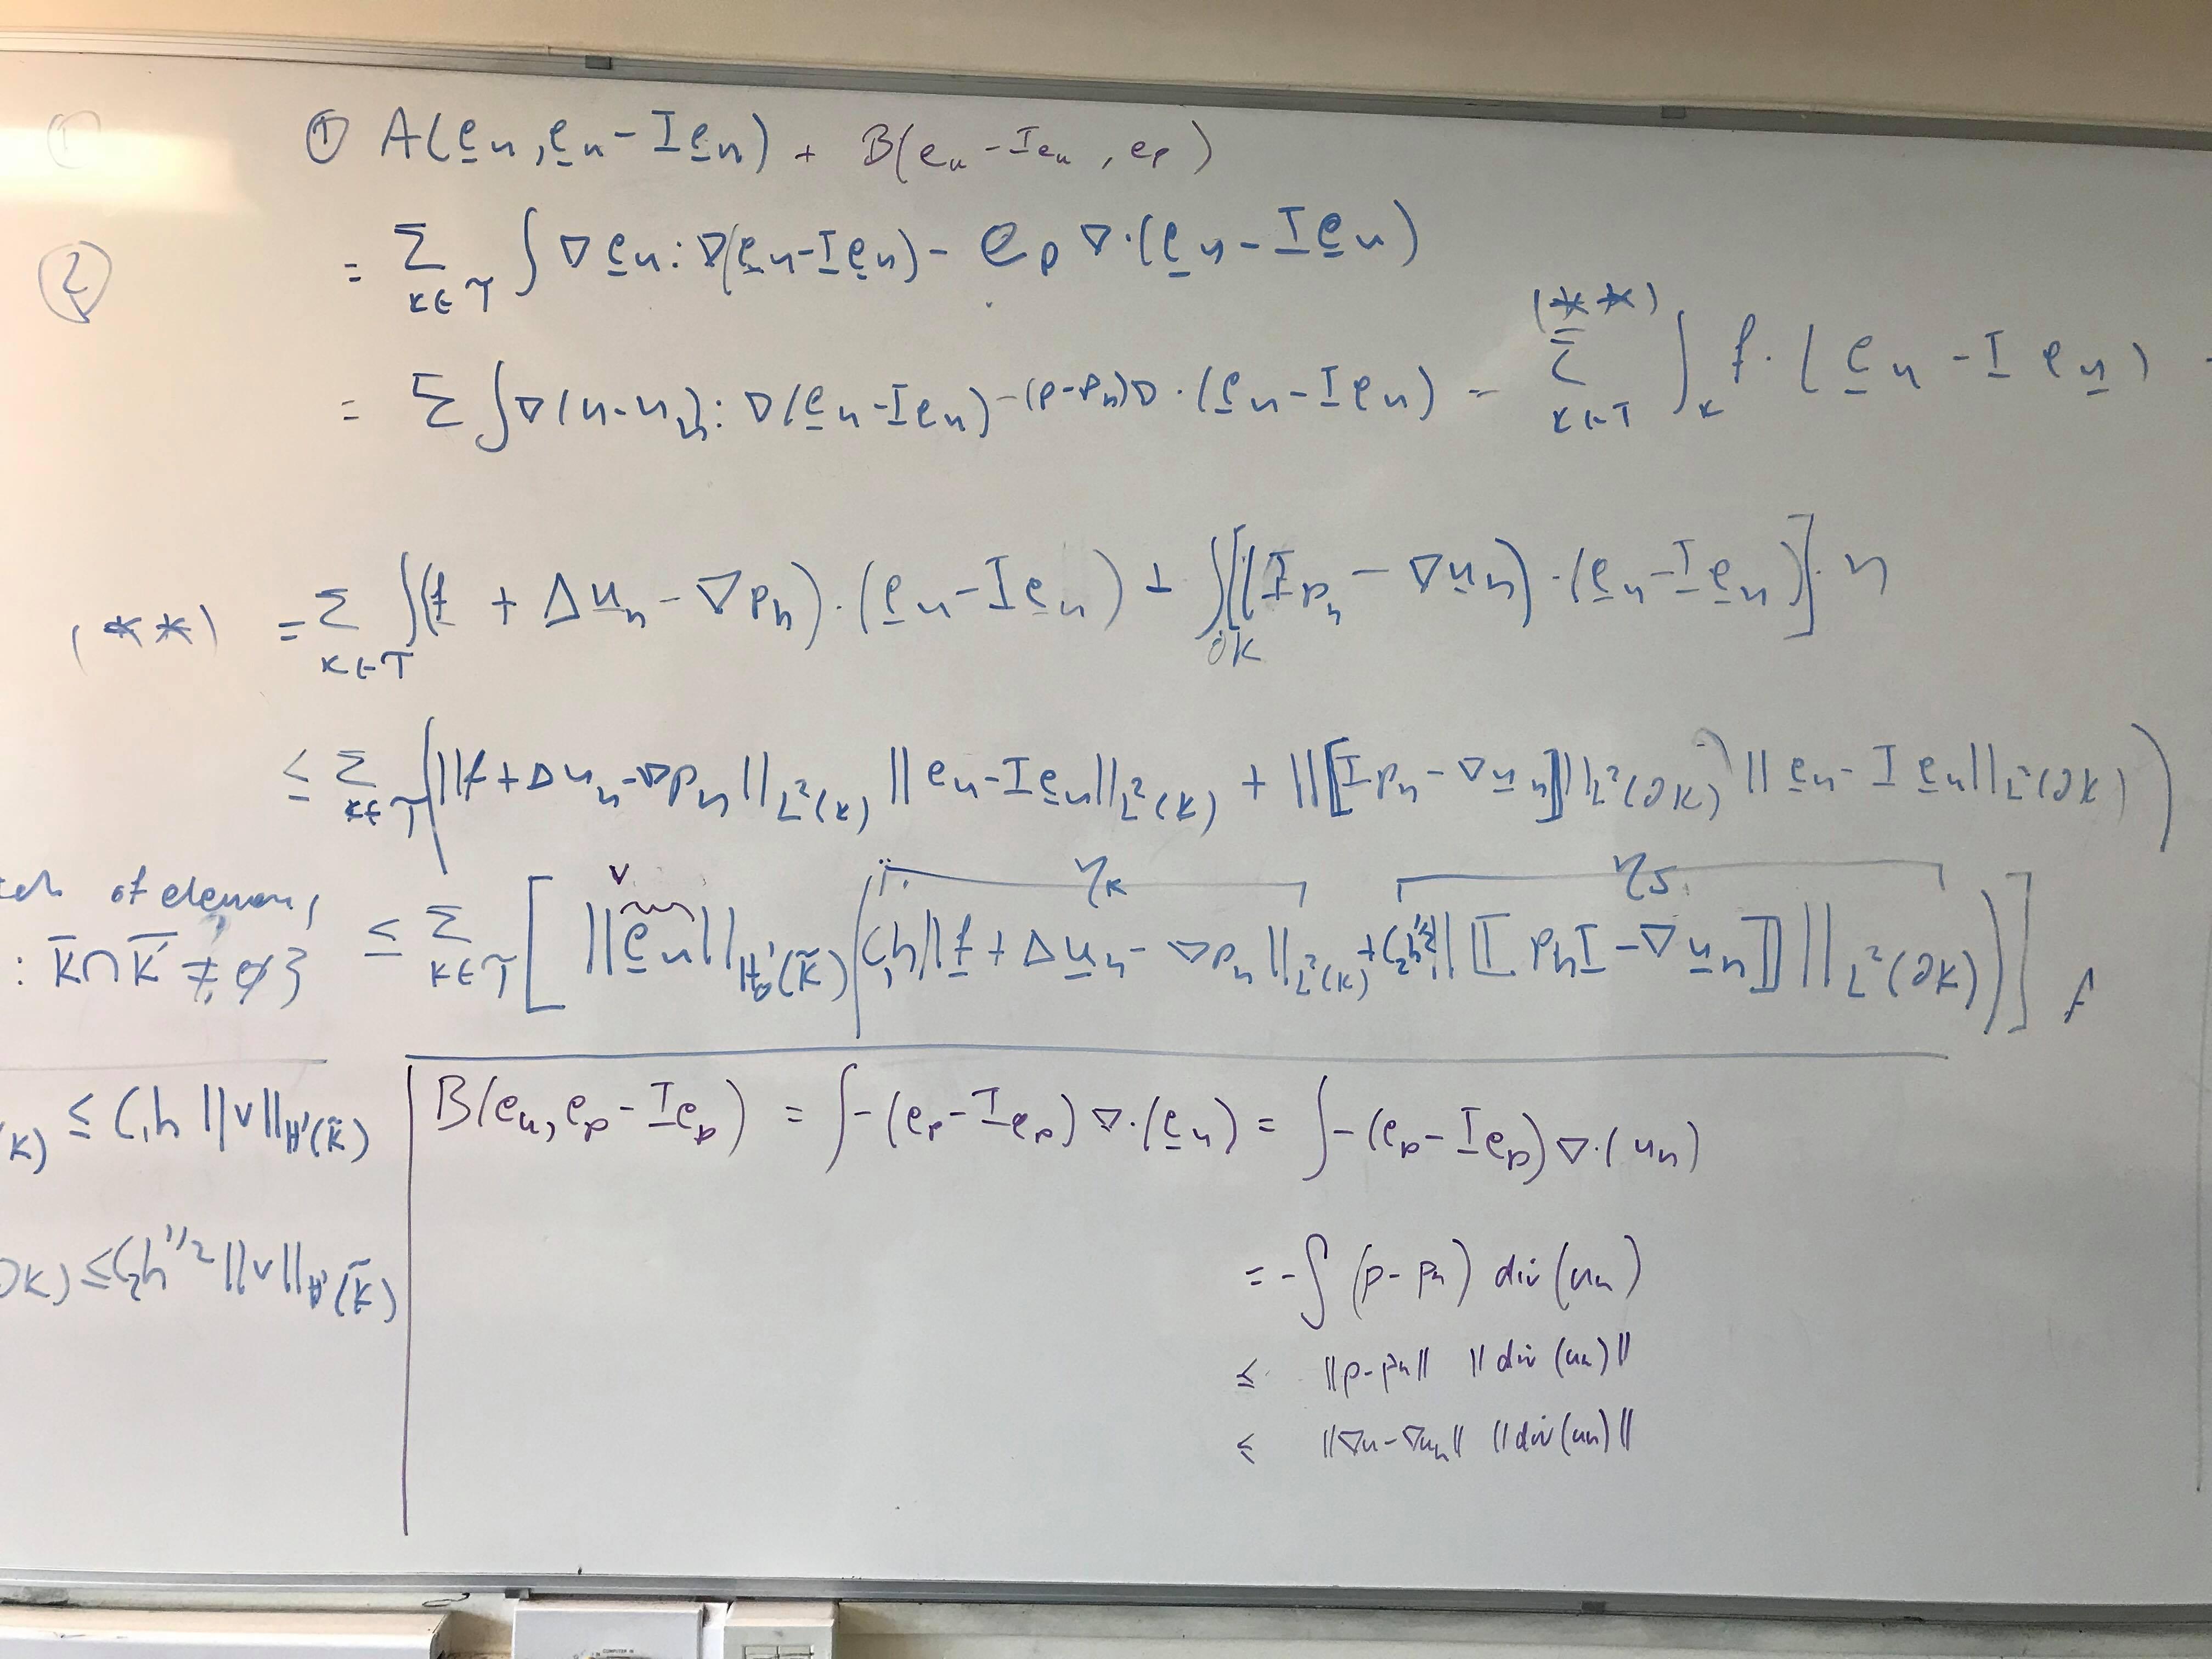 ① A(e̲u, e̲u - Ie̲u) + B(eu - Ieu, ep)
②
= Σ_{K∈T} ∫ ∇e̲u : ∇(e̲u - Ie̲u) - ep ∇·(e̲u - Ie̲u)
= Σ ∫ ∇(u-u_h) : ∇(e̲u - Ieu) - (p-p_h)∇·(e̲u - Ieu) (**) = Σ_{K∈T} ∫_K f·(e̲u - I eu) -
(**) = Σ_{K∈T} ∫(f + Δu̲_h - ∇p_h)·(e̲u - Ie̲u) + ∫_{∂K} [(I̲p_h - ∇u̲_h)·(e̲u - Ie̲u)]·n
≤ Σ_{K∈T} ( ||f + Δu_h - ∇p_h||_{L²(K)} ||eu - Ie̲u||_{L²(K)} + ||⟦Ip_h - ∇u̲_h⟧||_{L²(∂K)} ||e̲u - Ie̲u||_{L²(∂K)} )
v η_K η_S
of elemen,
: K̄∩K̄' ≠ ∅} ≤ Σ_{K∈T} [ ||e̲u||_{H¹₀(K̃)} ( C₁h||f̲ + Δu̲_h - ∇p_h||_{L²(K)} + C₂h^{1/2} ||⟦p_hI̲ - ∇u̲_h⟧||_{L²(∂K)} ) ]
K) ≤ C₁h ||v||_{H¹(K̃)}
B(eu, ep - Iep) = ∫ -(ep - Iep) ∇·(e̲u) = ∫ -(ep - Iep) ∇·(u_h)
∂K) ≤ C₂h^{1/2} ||v||_{H¹(K̃)}
= -∫ (p - p_h) div(u_h)
≤ ||p - p_h|| ||div(u_h)||
≤ ||∇u - ∇u_h|| ||div(u_h)||